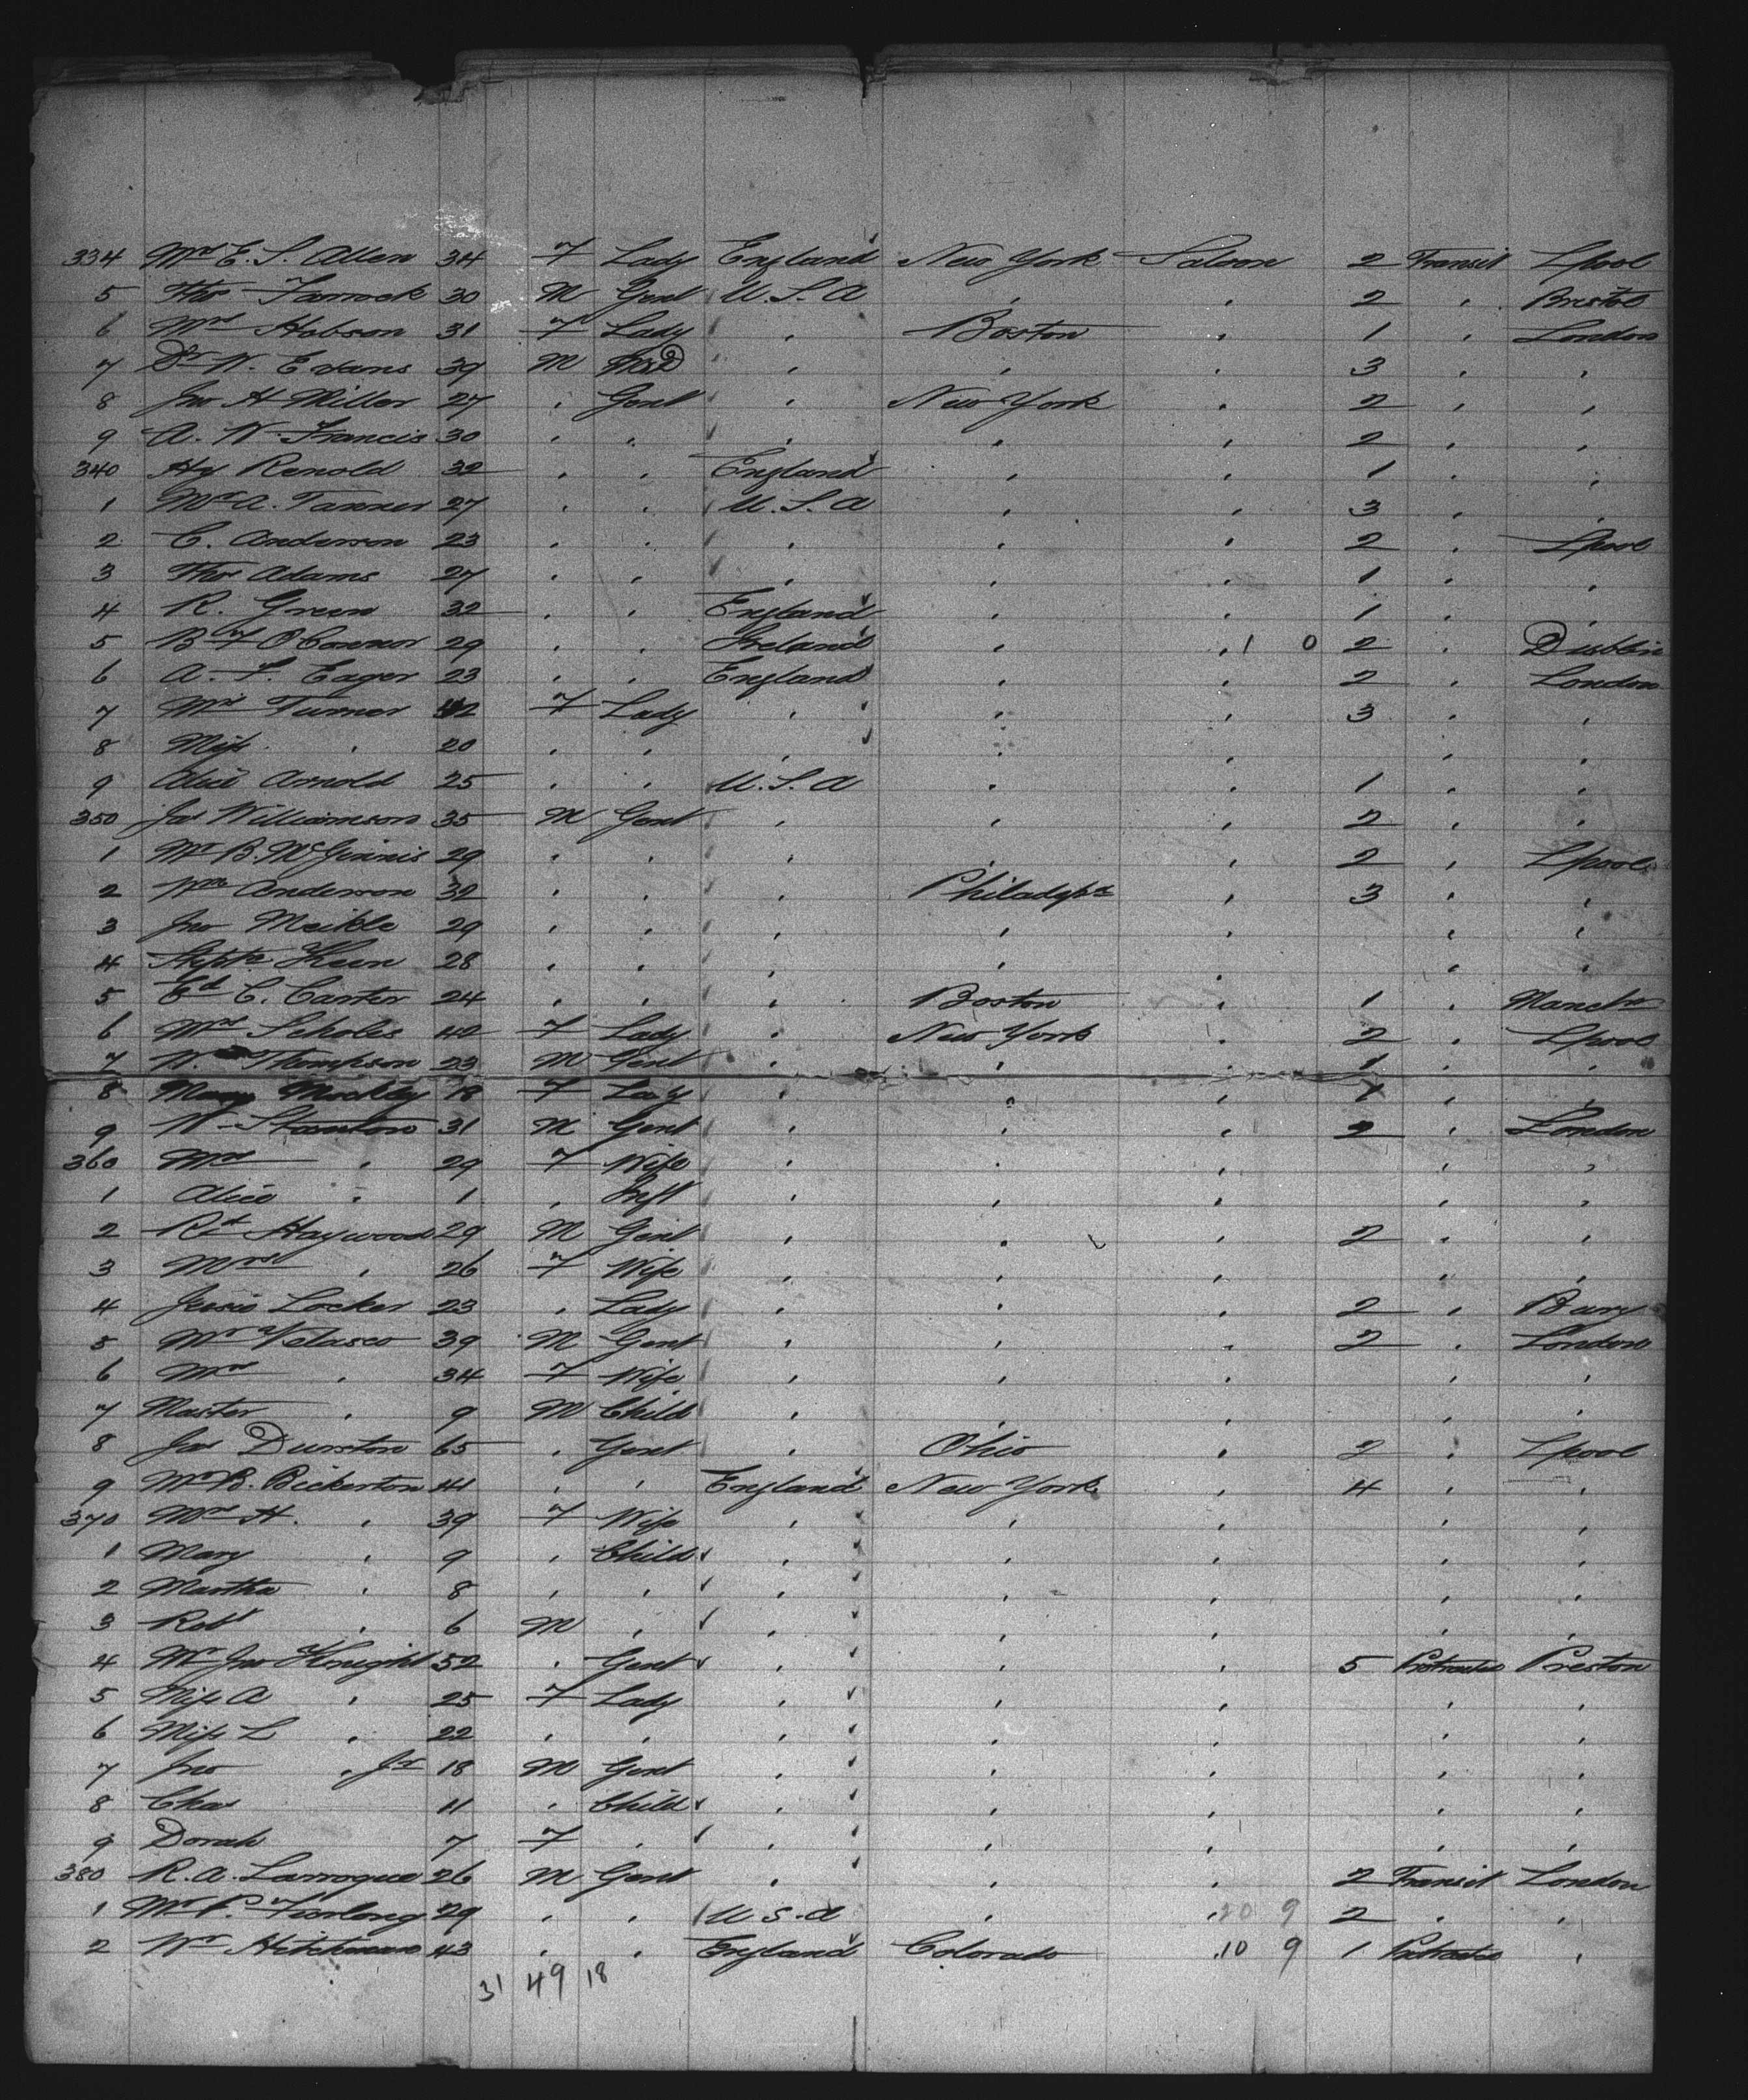 334 Mrs E. S. Allen 34 F Lady England New York Saloon 2 Transit Lpool
5 Thos 30 M Gent U.S.A " " 2 " Bristol
6 Mrs Hobson 31 F Lady " Boston " 1 " London
7 Dr W. Evans 39 M M.D " " " 3 " "
8 Jno H Miller 27 " Gent " New York " 2 " "
9 A. W. Francis 30 " " " " " 2 " "
340 Hy Renold 32 " " England " " 1 "
1 Mr A. Tanner 27 " " U.S.A " " 3 " "
2 C. Anderson 23 " " " " " 2 " Lpool
3 Thos Adams 27 " " " " " 1 " "
4 R. Green 32 " " England " " 1 " "
5 B F O'Connor 29 " " Ireland " " 1 0 2 " Dublin
6 A. F. Eager 23 " " England " " 2 " London
7 Mrs Turner 42 F Lady " " " 3 " "
8 Miss " 20 " " " " " " "
9 Alice Arnold 25 " " U.S.A " " 1 " "
350 Jas Williamson 35 M Gent " " " 2 " "
1 Mr B. McGinnis 29 " " " " " 2 " Lpool
2 Wm Anderson 32 " " " Philadpa " 3 " "
3 Jno Meikle 29 " " " " " " "
4 Keen 28 " " " " " " "
5 Ed C. Carter 24 " " " Boston " 1 " Manchr
6 Mrs Scholes 42 F Lady " New York " 2 " Lpool
7 W. Thompson 23 M Gent " " " 1 " "
8 Mary Mockley 18 F Lady " " " 1 " "
9 W Stanton 31 M Gent " " " 2 " London
360 Mrs " 29 F Wife " " " " "
1 Alice " 1 " Inft " " " " "
2 Rd Haywood 29 M Gent " " " 2 " "
3 Mrs " 26 F Wife " " " " "
4 Jessie Locker 23 " Lady " " " 2 " Bury
5 Mr Velasco 39 M Gent " " " 2 " London
6 Mrs " 34 F Wife " " " " "
7 Master " 9 M Child " " " " "
8 Jas Dunston 65 " Gent " Ohio " 2 " Lpool
9 Mr B. Bickerton 41 " " England New York " 4 " "
370 Mrs H. " 39 F Wife " " " " "
1 Mary " 9 " Child " " " " "
2 Martha " 8 " " " " " " "
3 Robt " 6 M " " " " " "
4 Mr Jno Knight 52 " Gent " " " 5 Protracted Preston
5 Miss A " 25 F Lady " " " " "
6 Miss L " 22 " " " " " " "
7 Jno " Jr 18 M Gent " " " " "
8 Chas 11 " Child " " " " "
9 Dorah 7 F " " " " " "
380 R. A. Larroque 26 M Gent " " " 2 Transit London
1 Mr P. Furlong 29 " " U.S.A " " 20 9 2 " "
2 Wr Hitchman 43 " " England Colorado " 10 9 1 Protracted "
31 49 18